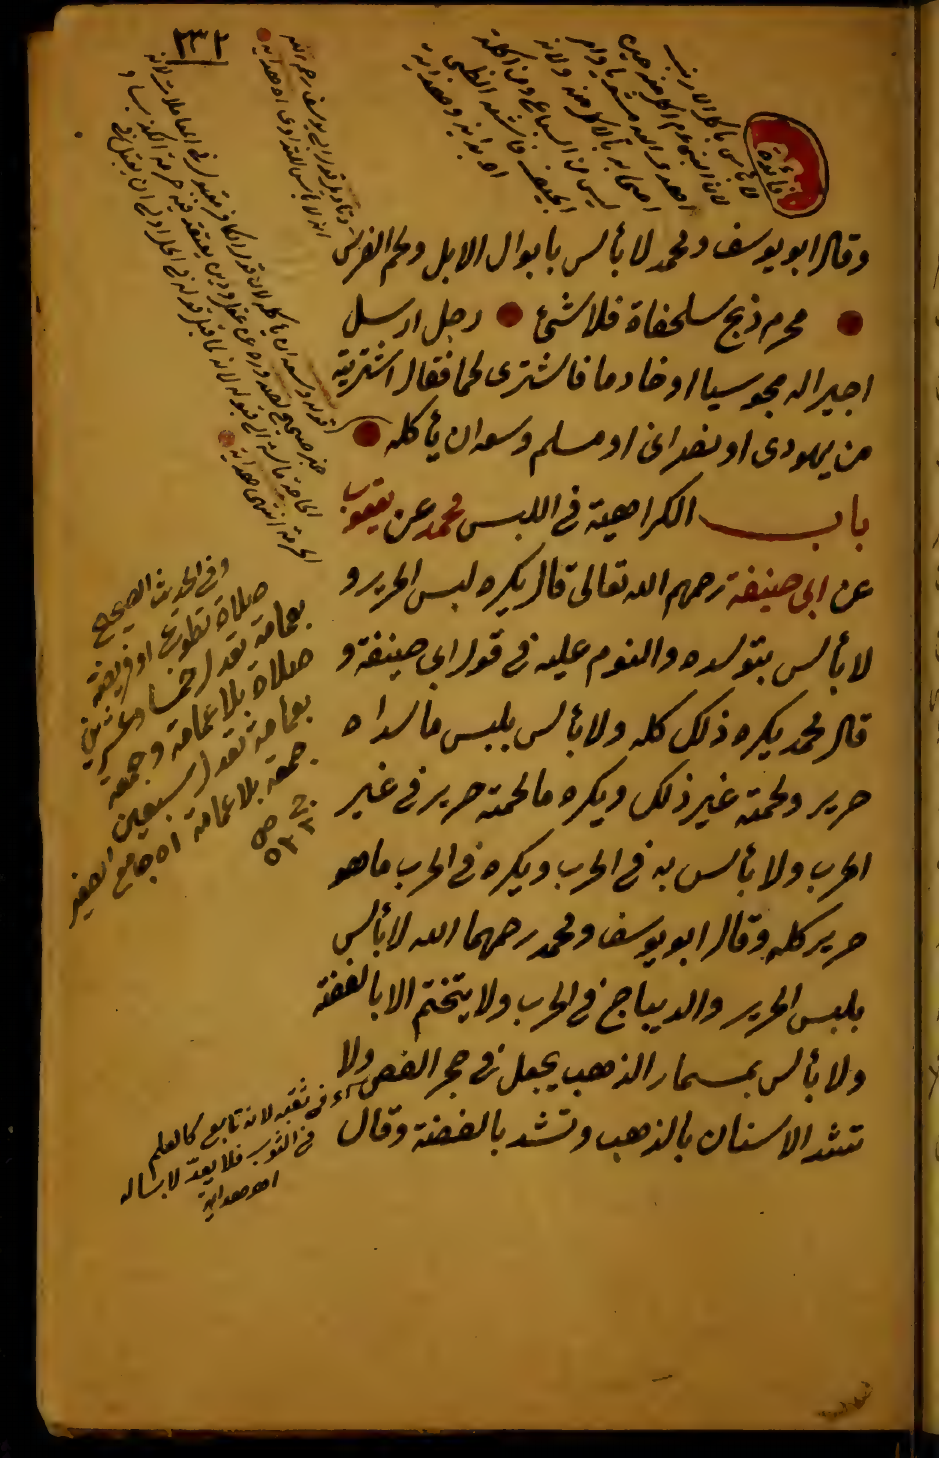 ٢٣٢
فائدة
لا بأس بأكل الارنب
لان النبي عم اكل منه حين
اهدى اليه مشويا وامر
اصحابه بالاكل منه ولانه
ليس من السباع ولا من اكلة
الجيف فاشبه الظبي
اه بداية وهداية
وقال ابو يوسف ومحمد لا بأس بابوال الابل ولحم الفرس
محرم ذبح سلحفاة فلا شئ رجل ارسل
اجيرا له مجوسيا او خادما فاشترى لحما فقال اشتريته
من يهودى او نصرانى او مسلم وسعه ان يأكله
باب الكراهية فى اللبس محمد عن يعقوب
عن ابى حنيفة رحمهم الله تعالى قال يكره لبس الحرير و
لا بأس بتوسده والنوم عليه فى قول ابى حنيفة و
قال محمد يكره ذلك كله ولا بأس بلبس ما سداه
حرير ولحمته غير ذلك ويكره ما لحمته حرير فى غير
الحرب ولا بأس به فى الحرب ويكره فى الحرب ما هو
حرير كله وقال ابو يوسف ومحمد رحمهما الله لا بأس
بلبس الحرير والديباج فى الحرب ولا يتختم الا بالفضة
ولا بأس بمسمار الذهب يجعل فى حجر الفص ولا
تشد الاسنان بالذهب وتشد بالفضة وقال
وفى الحديث الصحيح
صلاة تطوع او فريضة
بعمامة تعدل خمسا وعشرين
صلاة بلا عمامة وجمعة
بعمامة تعدل سبعين
جمعة بلا عمامة اه جامع الصغير
اى فى ثقبه لانه تابع كالعلم
فى الثوب فلا يعد لابسا له
اه هداية